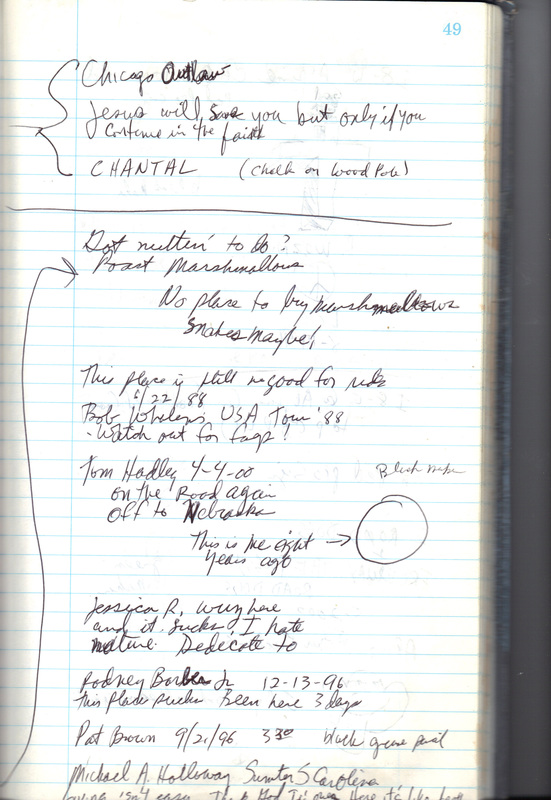 49
Chicago Outlaw
Jesus will save you but only if you
Contenue in the faith
CHANTAL (Chalk on Wood Pole)
Got nuttin' to do?
Roast Marshmallows
No place to buy marshmallows
Snakes Maybe!
This place is still no good for rides
6/22/88
Bob USA Tour '88
- Watch out for fags!
Tom Hadley 4-4-00
on the Road again
off to Nebraska
Black
This is me eight
years ago
Jessica R. wuz here
and it sucks! I hate
nature. Dedicate to
Rodney Barber Jr 12-13-96
This place sucks Been here 3 days
Pat Brown 9/21/96 3 30 black
Michael A. Holloway Sumter S Carolina
isn't easy.